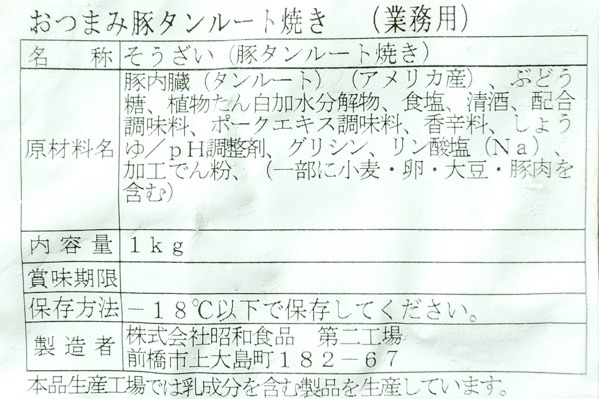 おつまみ豚タンルート焼き　（業務用）
名　　称　そうざい（豚タンルート焼き）
豚内臓（タンルート）（アメリカ産）、ぶどう
糖、植物たん白加水分解物、食塩、清酒、配合
原材料名　調味料、ポークエキス調味料、香辛料、しょう
ゆ／ｐＨ調整剤、グリシン、リン酸塩（Ｎａ）、
加工でん粉、（一部に小麦・卵・大豆・豚肉を
含む）
内 容 量　１ｋｇ
賞味期限
保存方法　－１８℃以下で保存してください。
製 造 者　株式会社昭和食品　第二工場
前橋市上大島町１８２－６７
本品生産工場では乳成分を含む製品を生産しています。